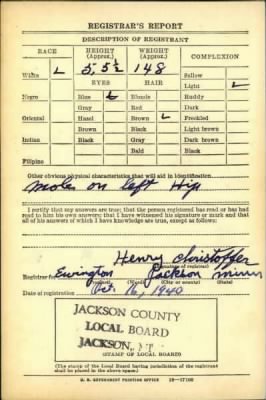 REGISTRAR'S REPORT
DESCRIPTION OF REGISTRANT
RACE HEIGHT (Approx.) WEIGHT (Approx.) COMPLEXION
White L 5, 5½ 148 Sallow
EYES HAIR Light L
Negro Blue L Blonde Ruddy
Gray Red Dark
Oriental Hazel Brown L Freckled
Brown Black Light brown
Indian Black Gray Dark brown
Bald Black
Filipino
Other obvious physical characteristics that will aid in identification
moles on left Hip
I certify that my answers are true; that the person registered has read or has had
read to him his own answers; that I have witnessed his signature or mark and that
all of his answers of which I have knowledge are true, except as follows:
Henry Christoffer
(Signature of registrar)
Registrar for Ewington Jackson Minn
(Precinct) (Ward) (City or county) (State)
Date of registration Oct. 16, 1940
JACKSON COUNTY
LOCAL BOARD
JACKSON,
(STAMP OF LOCAL BOARD)
(The stamp of the Local Board having jurisdiction of the registrant
shall be placed in the above space.)
U. S. GOVERNMENT PRINTING OFFICE 16—17105